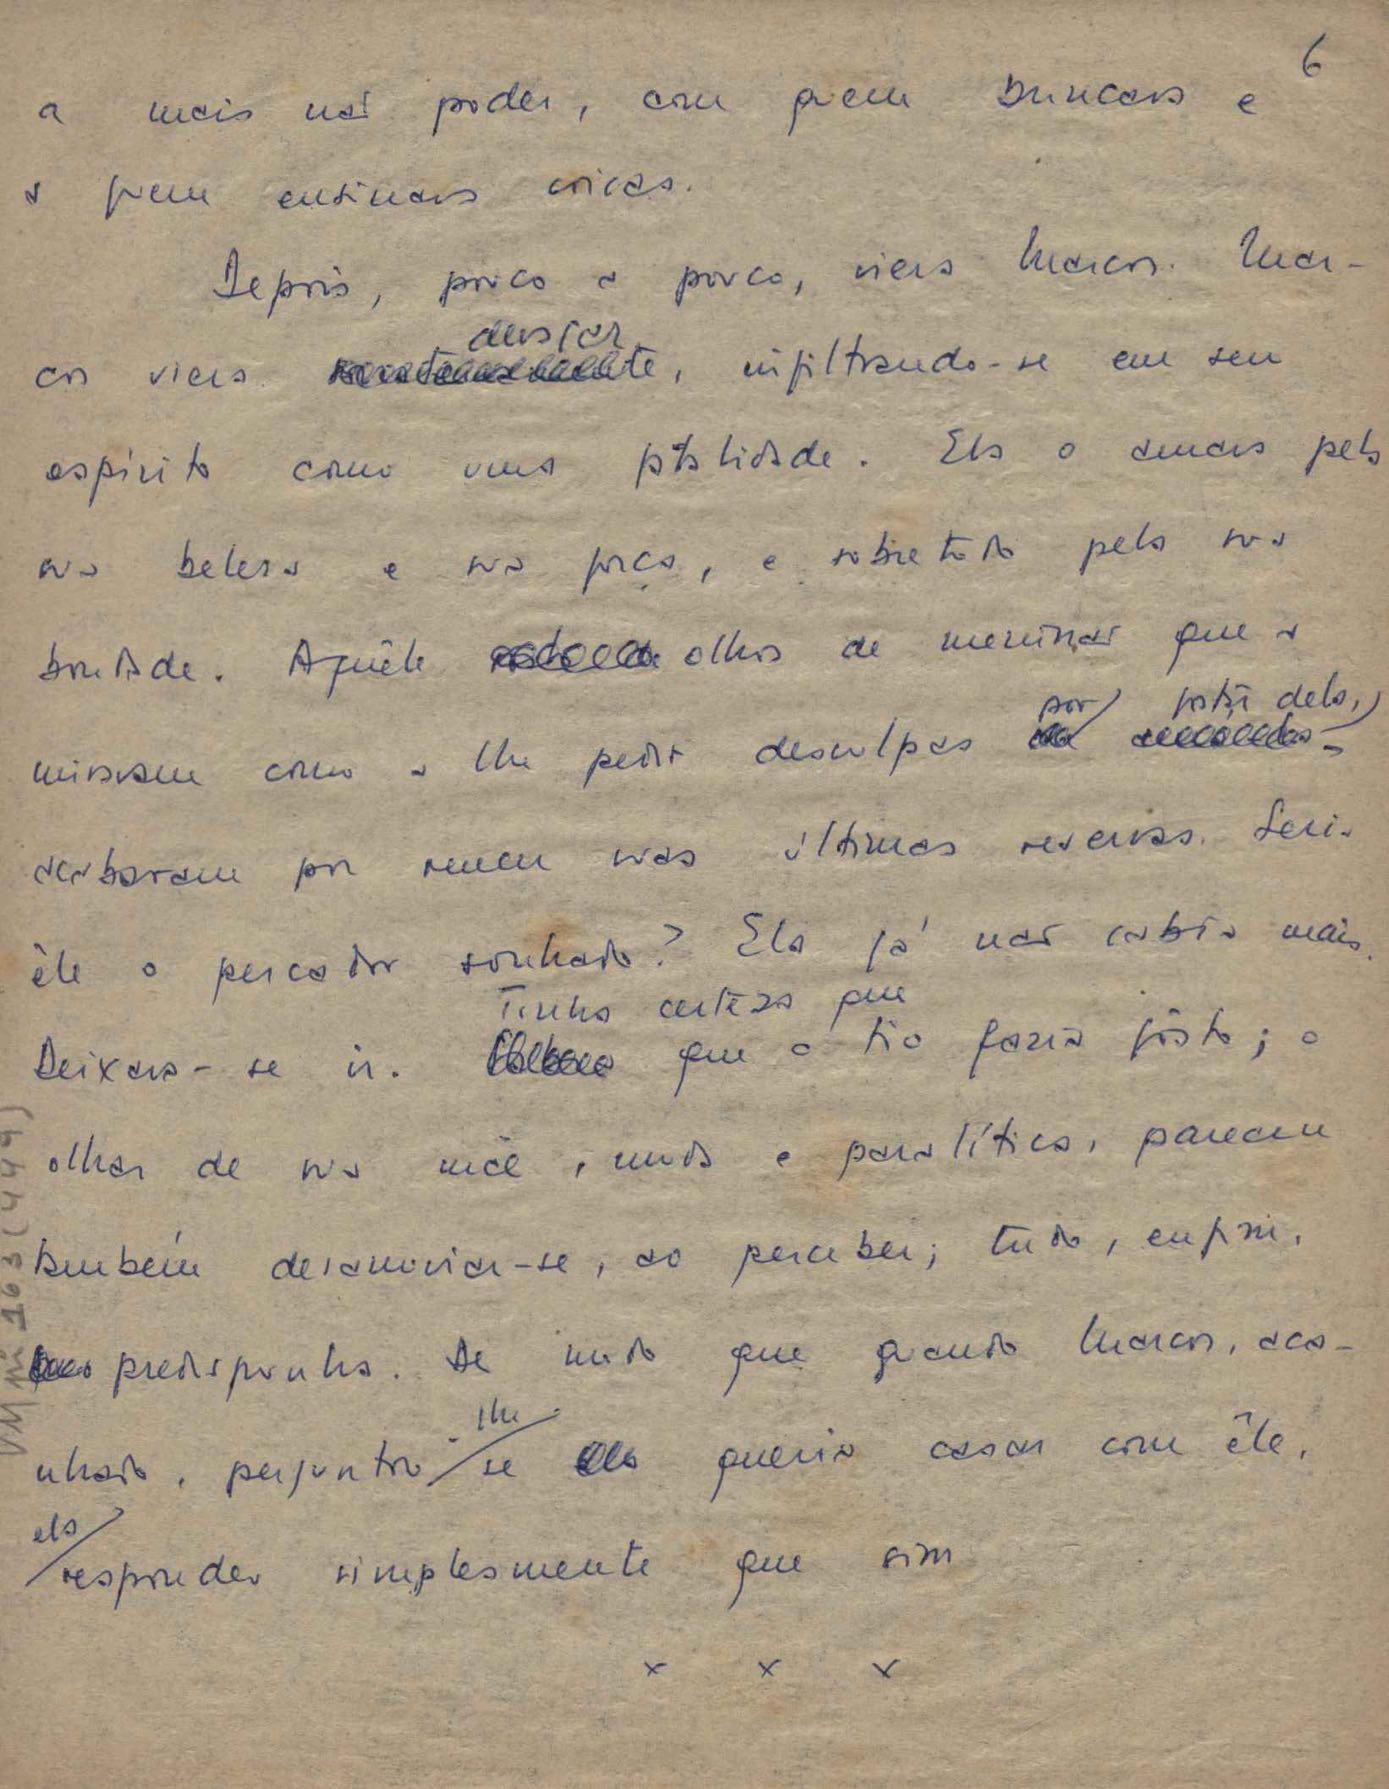 6
a mais não poder, com quem brincava e
a quem ensinava coisas.
Depois, pouco a pouco, viera Marcos. Mar-
cos viera devagar, infiltrando-se em seu
espírito como uma fatalidade. Ela o amava pela
sua beleza e sua força, e sobretudo pela sua
bondade. Aquêle olhos de meninão que a
miravam como a lhe pedir desculpas por gostar dela,
acabaram por vencer suas últimas reservas. Seria
êle o pescador sonhado? Ela já não sabia mais.
Deixava-se ir. Tinha certeza que
que o tio faria gôsto; o
olhar de sua mãe, muda e paralítica, pareceu
também desanuviar-se, ao perceber; tudo, enfim,
predispunha. De modo que quando Marcos, aca-
nhado, perguntou-lhe se queria casar com êle,
ela respondeu simplesmente que sim
x x x
VM mi 163 (449)